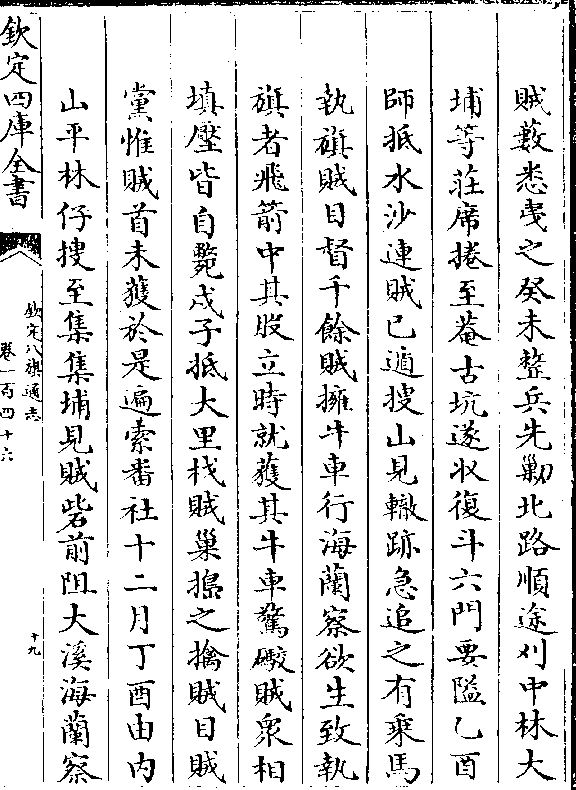 賊藪悉曵之癸未整兵先勦北路順途刈中林大
埔等莊席捲至菴古坑遂収復斗六門要隘乙酉
師抵水沙連賊已遁搜山見轍跡急追之有乘馬
執旗賊目督千餘賊擁牛車行海蘭察欲生致執
旗者飛箭中其股立時就獲其牛車驚礮賊衆相
填壓皆自斃戊子抵大里杙賊巢搗之擒賊目賊
黨惟賊首未獲於是遍索番社十二月丁酉由内
山平林仔搜至集集埔見賊砦前阻大溪海蘭察
欽定四庫全書
欽定八旗通志
卷一百四十六
十九